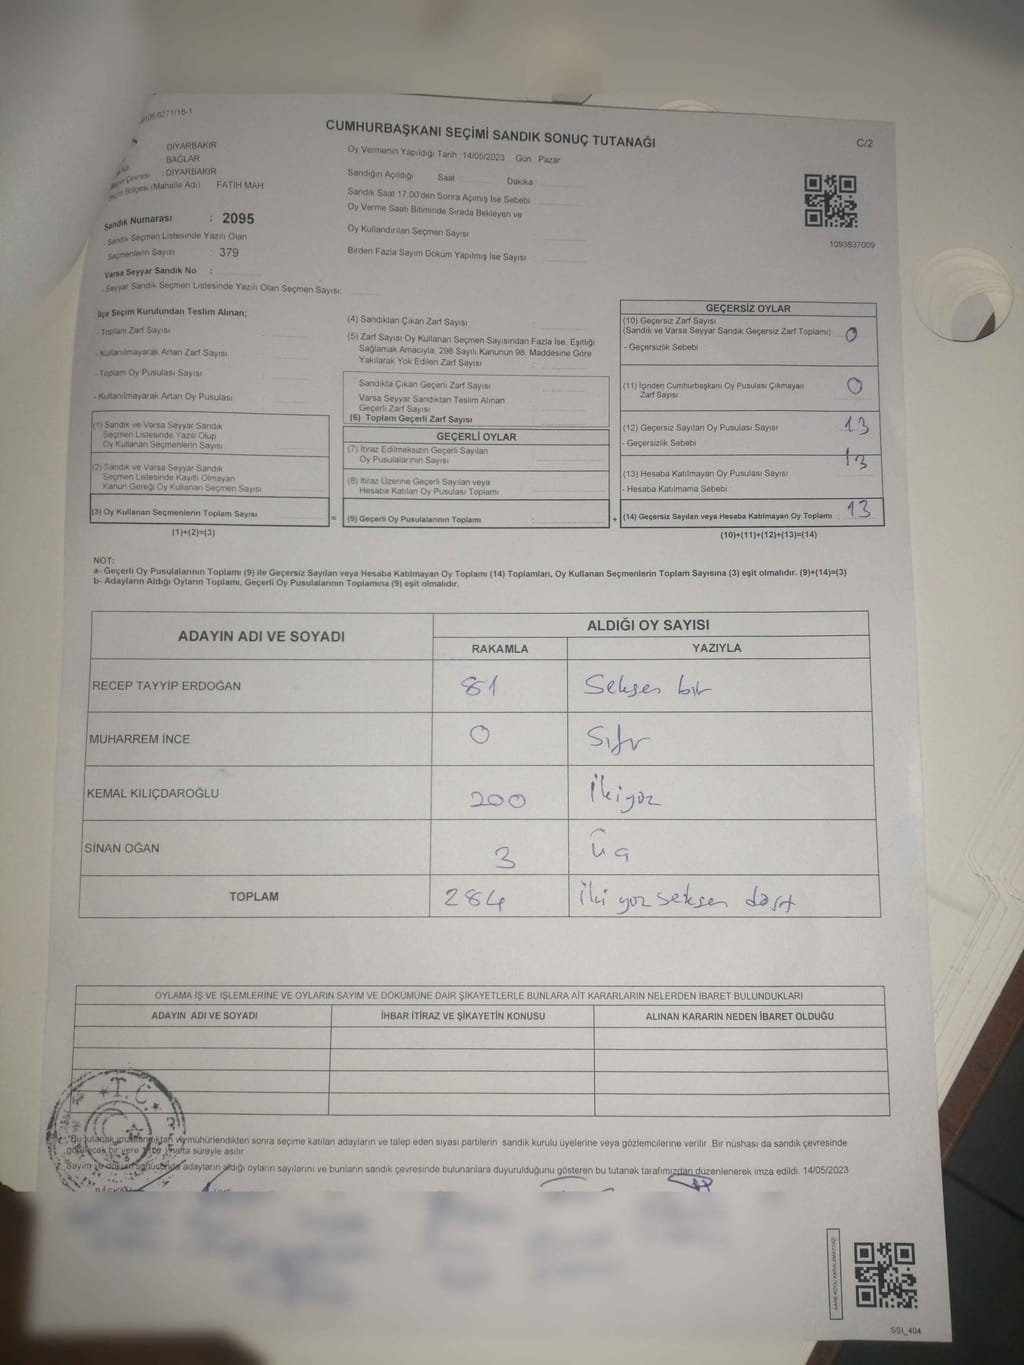 CUMHURBAŞKANI SEÇİMİ SANDIK SONUÇ TUTANAĞI
C/2
DİYARBAKIR
BAĞLAR
: DİYARBAKIR
(Mahalle Adı) FATİH MAH
Sandık Numarası : 2095
Sandık Seçmen Listesinde Yazılı Olan
Seçmenlerin Sayısı : 379
Varsa Seyyar Sandık No :
- Seyyar Sandık Seçmen Listesinde Yazılı Olan Seçmen Sayısı
Oy Vermenin Yapıldığı Tarih 14/05/2023 Gün Pazar
Sandığın Açıldığı Saat Dakika
Sandık Saat 17.00'den Sonra Açımış İse Sebebi
Oy Verme Saati Bitiminde Sırada Bekleyen ve
Oy Kullandırılan Seçmen Sayısı
Birden Fazla Sayım Döküm Yapılmış İse Sayısı :
1093837009
İlçe Seçim Kurulundan Teslim Alınan;
- Toplam Zarf Sayısı
- Kullanılmayarak Artan Zarf Sayısı
- Toplam Oy Pusulası Sayısı
- Kullanılmayarak Artan Oy Pusulası
(1) Sandık ve Varsa Seyyar Sandık
Seçmen Listesinde Yazılı Olup
Oy Kullanan Seçmenlerin Sayısı
(2) Sandık ve Varsa Seyyar Sandık
Seçmen Listesinde Kayıtlı Olmayan
Kanun Gereği Oy Kullanan Seçmen Sayısı
(3) Oy Kullanan Seçmenlerin Toplam Sayısı
(1)+(2)=(3)
=
(4) Sandıktan Çıkan Zarf Sayısı
(5) Zarf Sayısı Oy Kullanan Seçmen Sayısından Fazla İse, Eşitliği
Sağlamak Amacıyla, 298 Sayılı Kanunun 98. Maddesine Göre
Yakılarak Yok Edilen Zarf Sayısı
Sandıkta Çıkan Geçerli Zarf Sayısı
Varsa Seyyar Sandıktan Teslim Alınan
Geçerli Zarf Sayısı
(6) Toplam Geçerli Zarf Sayısı
GEÇERLİ OYLAR
(7) İtiraz Edilmeksizin Geçerli Sayılan
Oy Pusulalarının Sayısı
(8) İtiraz Üzerine Geçerli Sayılan veya
Hesaba Katılan Oy Pusulası Toplamı
(9) Geçerli Oy Pusulalarının Toplamı
+
GEÇERSİZ OYLAR
(10) Geçersiz Zarf Sayısı
(Sandık ve Varsa Seyyar Sandık Geçersiz Zarf Toplamı) 0
- Geçersizlik Sebebi
(11) İçinden Cumhurbaşkanı Oy Pusulası Çıkmayan
Zarf Sayısı 0
(12) Geçersiz Sayılan Oy Pusulası Sayısı 13
- Geçersizlik Sebebi
13
(13) Hesaba Katılmayan Oy Pusulası Sayısı
- Hesaba Katılmama Sebebi
(14) Geçersiz Sayılan veya Hesaba Katılmayan Oy Toplamı 13
(10)+(11)+(12)+(13)=(14)
NOT:
a- Geçerli Oy Pusulalarının Toplamı (9) ile Geçersiz Sayılan veya Hesaba Katılmayan Oy Toplamı (14) Toplamları, Oy Kullanan Seçmenlerin Toplam Sayısına (3) eşit olmalıdır. (9)+(14)=(3)
b- Adayların Aldığı Oyların Toplamı, Geçerli Oy Pusulalarının Toplamına (9) eşit olmalıdır.
ADAYIN ADI VE SOYADI
ALDIĞI OY SAYISI
RAKAMLA YAZIYLA
RECEP TAYYİP ERDOĞAN 81 Seksen bir
MUHARREM İNCE 0 Sıfır
KEMAL KILIÇDAROĞLU 200 İkiyüz
SİNAN OĞAN 3 Üç
TOPLAM 284 İki yüz seksen dört
OYLAMA İŞ VE İŞLEMLERİNE VE OYLARIN SAYIM VE DÖKÜMÜNE DAİR ŞİKAYETLERLE BUNLARA AİT KARARLARIN NELERDEN İBARET BULUNDUKLARI
ADAYIN ADI VE SOYADI İHBAR İTİRAZ VE ŞİKAYETİN KONUSU ALINAN KARARIN NEDEN İBARET OLDUĞU
T.C.
mühürlendikten sonra seçime katılan adayların ve talep eden siyasi partilerin sandık kurulu üyelerine veya gözlemcilerine verilir. Bir nüshası da sandık çevresinde
bir yere 1 bir hafta süreyle asılır
adayların aldığı oyların sayılarını ve bunların sandık çevresinde bulunanlara duyurulduğunu gösteren bu tutanak tarafımızdan düzenlenerek imza edildi. 14/05/2023
SSI_404